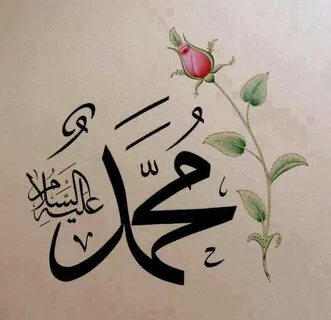 محمد
عليه السلام